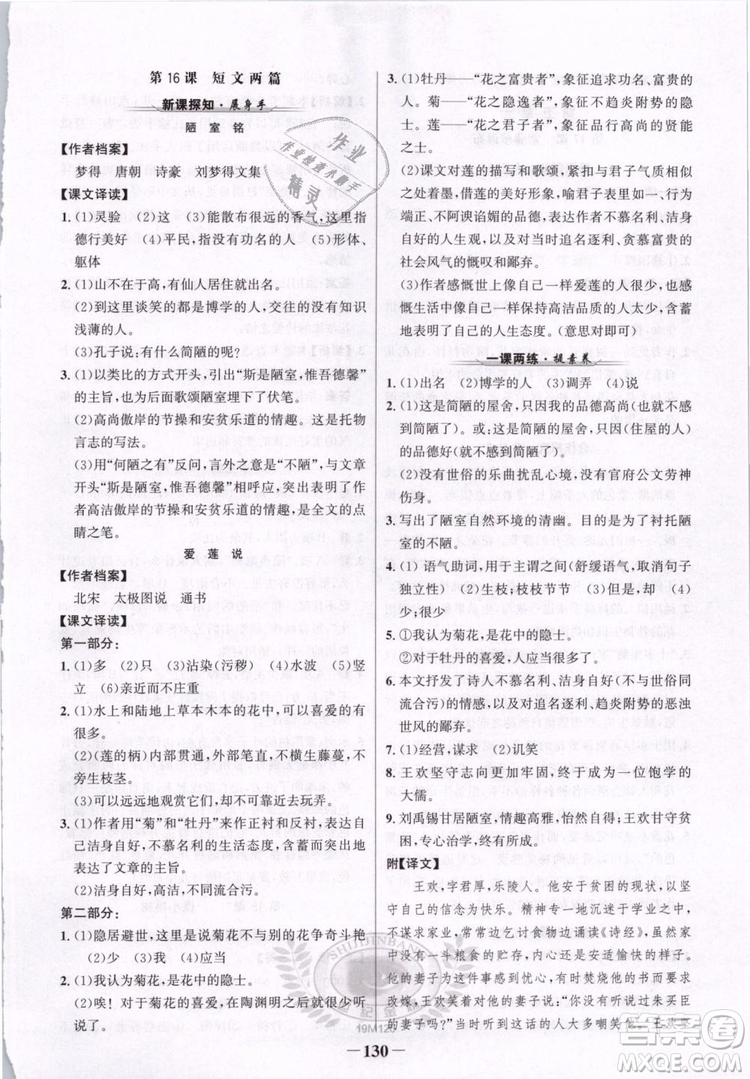 第16课 短文两篇
新课探知·展身手
陋室铭
【作者档案】
梦得 唐朝 诗豪 刘梦得文集
【课文译读】
1. (1)灵验 (2)这 (3)能散布很远的香气,这里指
德行美好 (4)平民,指没有功名的人 (5)形体、
躯体
2. (1)山不在于高,有仙人居住就出名。
(2)到这里谈笑的都是博学的人,交往的没有知识
浅薄的人。
(3)孔子说:有什么简陋的呢?
3. (1)以类比的方式开头,引出“斯是陋室,惟吾德馨”
的主旨,为后面歌颂陋室埋下了伏笔。
(2)高尚傲岸的节操和安贫乐道的情趣;这是托物
言志的写法。
(3)用“何陋之有”反问,言外之意是“不陋”,与文章
开头“斯是陋室,惟吾德馨”相呼应,突出了主题:作
者高洁傲岸的节操和安贫乐道的情趣,是全文的点
睛之笔。
爱莲说
【作者档案】
北宋 太极图说 通书
【课文译读】
第一部分:
1. (1)多 (2)只 (3)沾染(污秽) (4)水波 (5)竖
立 (6)亲近而不庄重
2. (1)水上和陆地上草本木本的花中,可以喜爱的有
很多。
(2)(莲的柄)内部贯通,外部笔直,不横生藤蔓,不
旁生枝茎。
(3)可以远远地观赏它们,却不能靠近去玩弄。
3. (1)作者用“菊”和“牡丹”来作正衬和反衬,表达自
己洁身自好,不慕名利的生活态度,含蓄而突出地
表达了文章的主旨。
(2)洁身自好,高洁,不同流合污。
第二部分:
1. (1)隐居避世,这里是说菊花不与别的花争奇斗艳
(2)少 (3)我 (4)应当
2. (1)我认为菊花,是花中的隐士。
(2)唉!对于菊花的喜爱,在陶渊明之后很少听
到了。
3. (1)牡丹——“花之富贵者”,象征追求功名,富贵的
人。菊——“花之隐逸者”,象征不趋炎附势的隐
士。莲——“花之君子者”,象征品行高尚的贤能
之士。
(2)课文对莲的描写和歌颂,紧紧扣住与君子气质相
似的特征,借莲的美好形象,喻君子在行为方
端正、不阿谀谄媚的品德,表达作者不慕名利、洁身
自好的人生观,以及对当时追名逐利、趋炎附势的
社会风气的慨叹和鄙弃。
(3)作者感慨世上像自己一样爱莲的人很少,也感
慨生活中像自己一样保持高洁品德的人很少。含蓄
地表明了自己的人生态度。(意思对即可)
一课两练·提素养
1. (1)出名 (2)博学的人 (3)调弄 (4)书
2. (1)这是简陋的屋舍,只因我的品德高尚(就感觉不
到简陋了)。(这是简陋的屋舍,只因(住屋的人)的
品德好(就感觉不到简陋了)。)
(2)没有世俗的乐曲扰乱心境,没有官府公文劳神
伤身。
3. 写出了陋室自然环境的清幽。目的是为了衬托陋
室的不陋。
4. (1)语气助词,一说:用于主谓之间(舒缓语气),取消句子
独立性 (2)生枝;枝枝节节 (3)但是,却 (4)
少,很少
5. ①我认为菊花,是花中的隐士。
②对于牡丹的喜爱,人应当很多了。
6. 本文抒发了诗人不慕名利、洁身自好(不与世俗同
流合污)的情怀,以及对追名逐利、趋炎附势的恶浊
世风的鄙弃。
7. (1)经营,谋求 (2)讥笑
8. 王欢坚守志向更加牢固,终于成为一位饱学的
大儒。
9. 刘禹锡甘居陋室,情趣高雅,恬然自得;王欢甘守
困贫,专心治学,终有所成。
附【译文】
王欢,字君厚,乐陵人。他安于贫困的现
状,坚守自己的信念。精神专一地沉迷于学业,
不谋求家业,常常一边讨食物边诵读《诗经》,虽然
家中没有一斗粮食的贮存,仍心中安适愉快的样
子。他的妻子为这件事感到担忧,有时焚烧他的书求
改嫁,王欢笑着对他的妻子说:“你没听说过朱买臣
的妻子吗?”当时听到这话的人大多嘲笑他。王欢
19M123
130